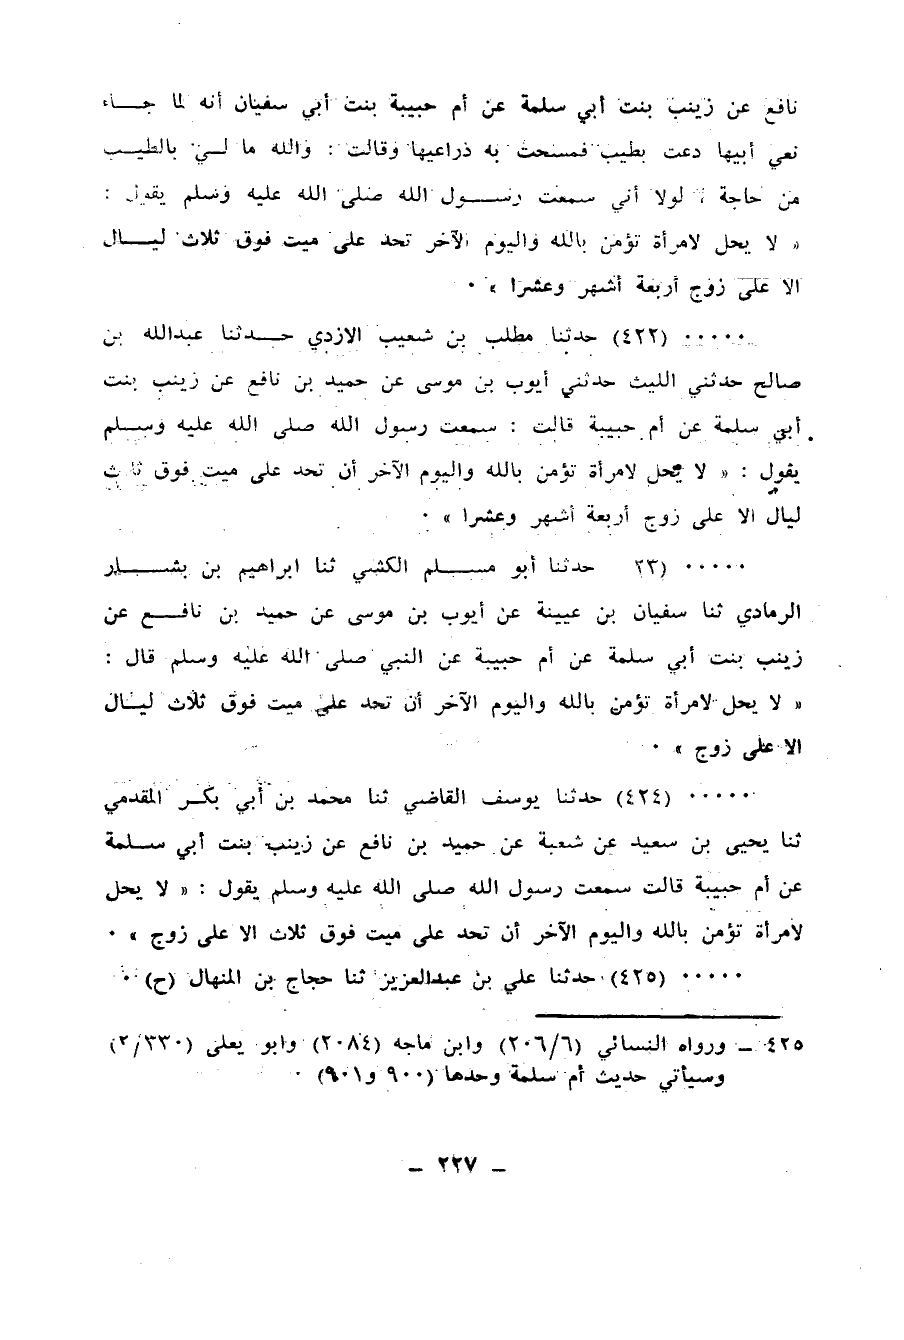 نافع عن زينب بنت أبي سلمة عن أم حبيبة بنت أبي سفيان أنه لما جـــاء
نعي أبيها دعت بطيب فمسحت به ذراعيها وقالت : والله ما لـي بالطيـب
من حاجة ، لولا أني سمعت رســـول الله صلى الله عليه وسلم يقول :
« لا يحل لامرأة تؤمن بالله واليوم الآخر تحد على ميت فوق ثلاث ليـــال
الا على زوج أربعة أشهر وعشرا » ٠
٠٠٠٠٠ (٤٢٢) حدثنا مطلب بن شعيب الازدي حـــدثنا عبدالله بن
صالح حدثني الليث حدثني أيوب بن موسى عن حميد بن نافع عن زينب بنت
أبي سلمة عن أم حبيبة قالت : سمعت رسول الله صلى الله عليه وسـلم
يقول : « لا يحل لامرأة تؤمن بالله واليوم الآخر أن تحد على ميت فوق
ليال الا على زوج أربعة أشهر وعشرا » ٠
٠٠٠٠٠ (٢٣ حدثنا أبو مـــلم الكشي ثنا ابراهيم بن بشـــار
الرمادي ثنا سفيان بن عيينة عن أيوب بن موسى عن حميد بن نافـــع عن
زينب بنت أبي سلمة عن أم حبيبة عن النبي صلى الله عليه وسلم قال :
« لا يحل لامرأة تؤمن بالله واليوم الآخر أن تحد على ميت فوق ثلاث ليـال
الا على زوج » ٠
٠٠٠٠٠ (٤٢٤) حدثنا يوسف القاضي ثنا محمد بن أبي بكـر المقدمي
ثنا يحيى بن سعيد عن شعبة عن حميد بن نافع عن زينب بنت أبي سـلمة
عن أم حبيبة قالت سمعت رسول الله صلى الله عليه وسلم يقول : « لا يحل
لامرأة تؤمن بالله واليوم الآخر أن تحد على ميت فوق ثلاث الا على زوج » ٠
٠٠٠٠٠ (٤٢٥) حدثنا علي بن عبدالعزيز ثنا حجاج بن المنهال (ح) ٠
٤٢٥ ـ ورواه النسائي (٢٠٦/٦) وابن ماجه (٢٠٨٤) وابو يعلى (٢/٣٣٠)
وسيأتي حديث أم سلمة وحدها (٩٠٠ و٩٠١) ٠
ـ ٢٢٧ ـ